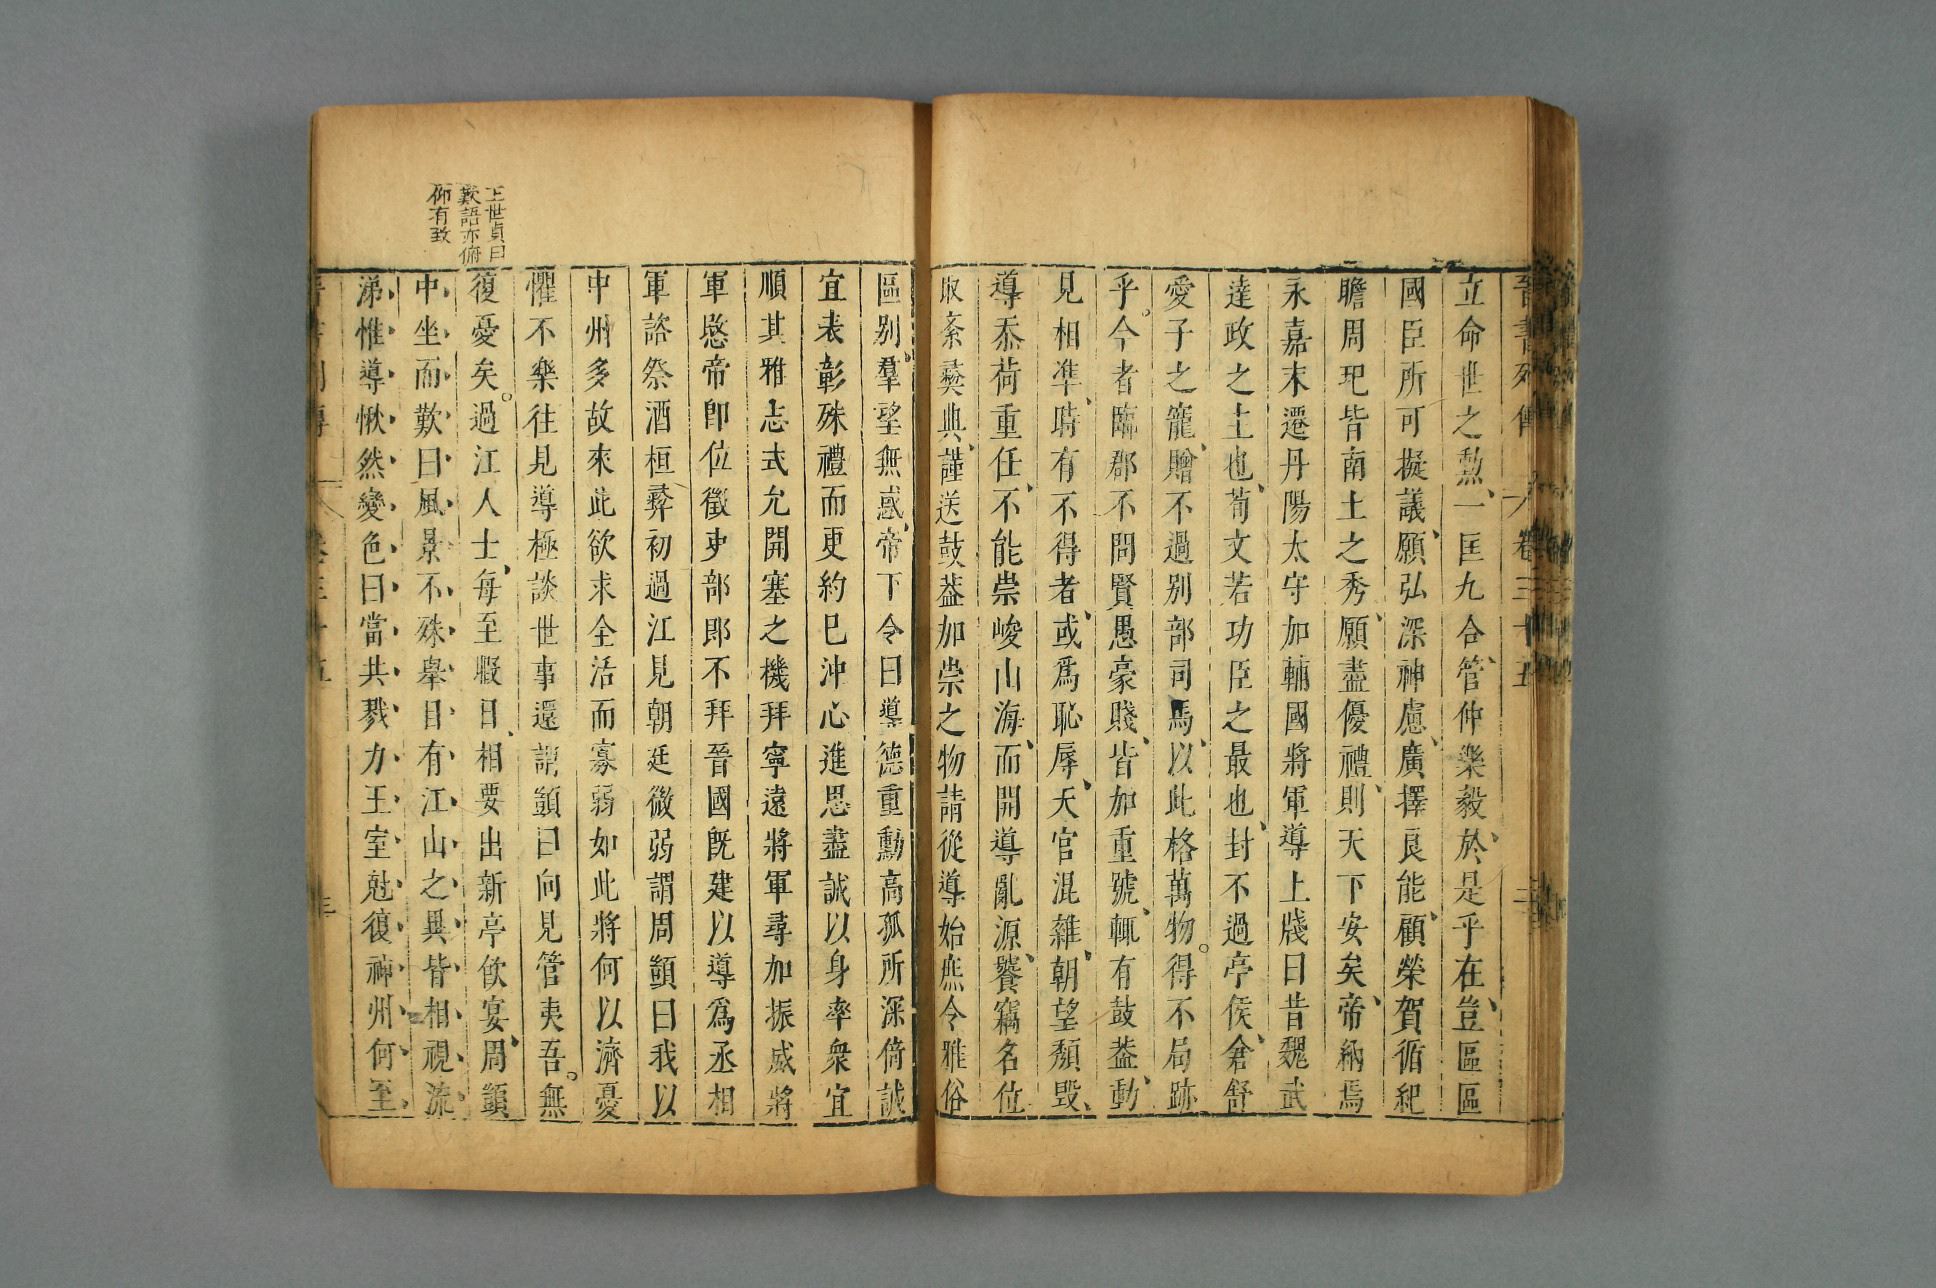 晉書列傳 卷三十五
立命世之勲、一匡九合、管仲樂毅、於是乎在、豈區區
國臣所可擬議、願弘深神慮、廣擇良能、顧榮賀循紀
瞻周玘皆南土之秀、願盡優禮、則天下安矣、帝納焉
永嘉末遷丹陽太守加輔國將軍導上牋曰昔魏武
達政之主也、荀文若功臣之最也、封不過亭侯、倉舒
愛子之寵、贈不過别部司馬、以此格萬物。得不局跡
乎。今者臨郡不問賢愚豪賤、皆加重號、輒有鼓葢、動
見相準、時有不得者、或爲恥辱、天官混雜、朝望頽毀、
導忝荷重任、不能崇峻山海、而開導亂源、饕竊名位
取紊彝典、謹送鼓葢加崇之物請從導始庶令雅俗
區别、羣望無惑、帝下令曰導德重勳高孤所深倚誠
宜表彰殊禮而更約已沖心進思盡誠以身率衆宜
順其雅志式允開塞之機拜寧遠將軍尋加振威將
軍愍帝卽位徵吏部郎不拜晉國旣建以導爲丞相
軍諮祭酒桓彝初過江見朝廷微弱謂周顗曰我以
中州多故來此欲求全活而寡弱如此將何以濟憂
懼不樂往見導極談世事還謂顗曰向見管夷吾。無
復憂矣。過江人士、每至暇日、相要出新亭飲宴、周顗
中坐而歎曰風景不殊舉目有江山之異皆相視流
涕惟導愀然變色曰當共戮力王室尅復神州何至
王世貞曰
歎語亦俯
仰有致